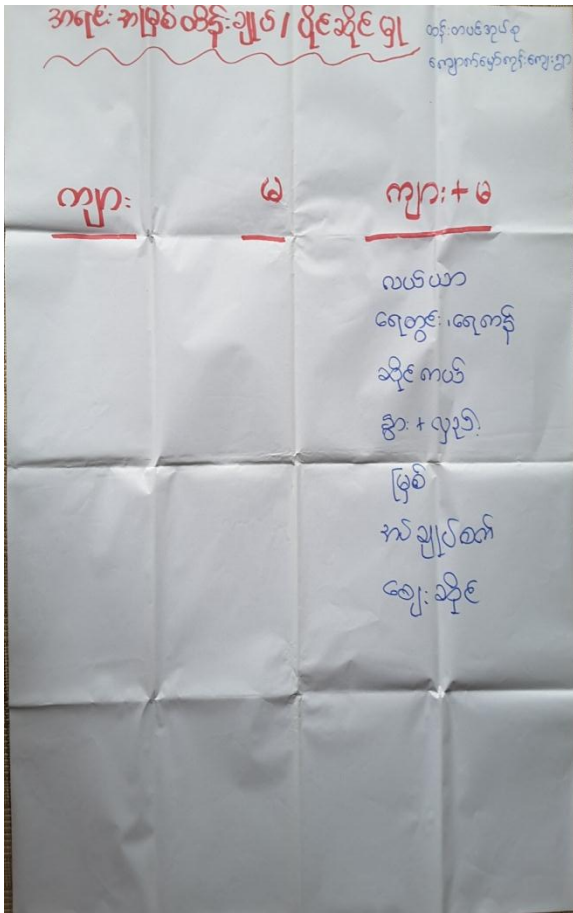 အရင်းအမြစ်ထိန်းချုပ် / ပိုင်ဆိုင်မှု
ထန်းတပင်အုပ်စု
ကျောက်မှော်ကုန်းကျေးရွာ
ကျား မ ကျား + မ
လယ်ယာ
ရေတွင်း ၊ ရေကန်
ဆိုင်ကယ်
နွား + လှည်း
မြစ်
အပ်ချုပ်စက်
ဈေးဆိုင်